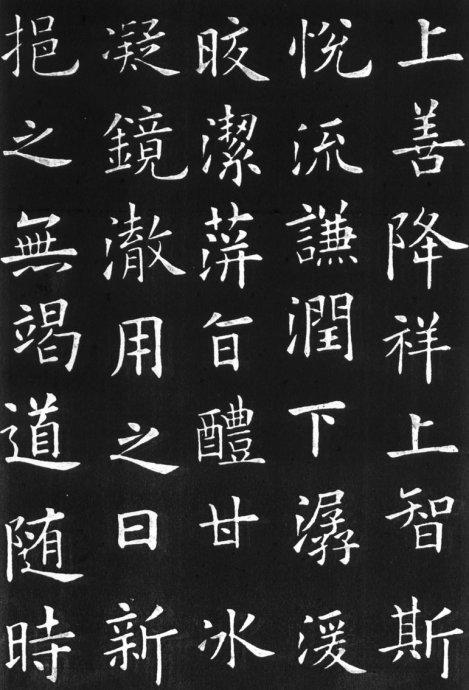 上善降祥上智斯
悅流謙潤下潺湲
晈潔萍旨醴甘冰
凝鏡澈用之日新
挹之無竭道随時